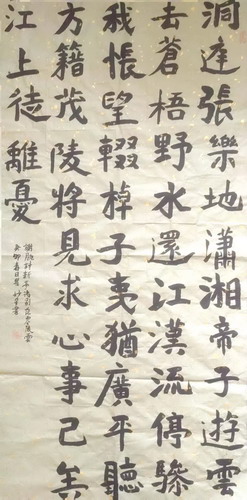 洞庭張樂地瀟湘帝子遊雲
去蒼梧野水還江漢流停驂
我悵望輟棹子夷猶廣平聽
方籍茂陵將見求心事已矣
江上徒離憂
謝朓詩新亭渚別范零陵雲
癸卯春日書